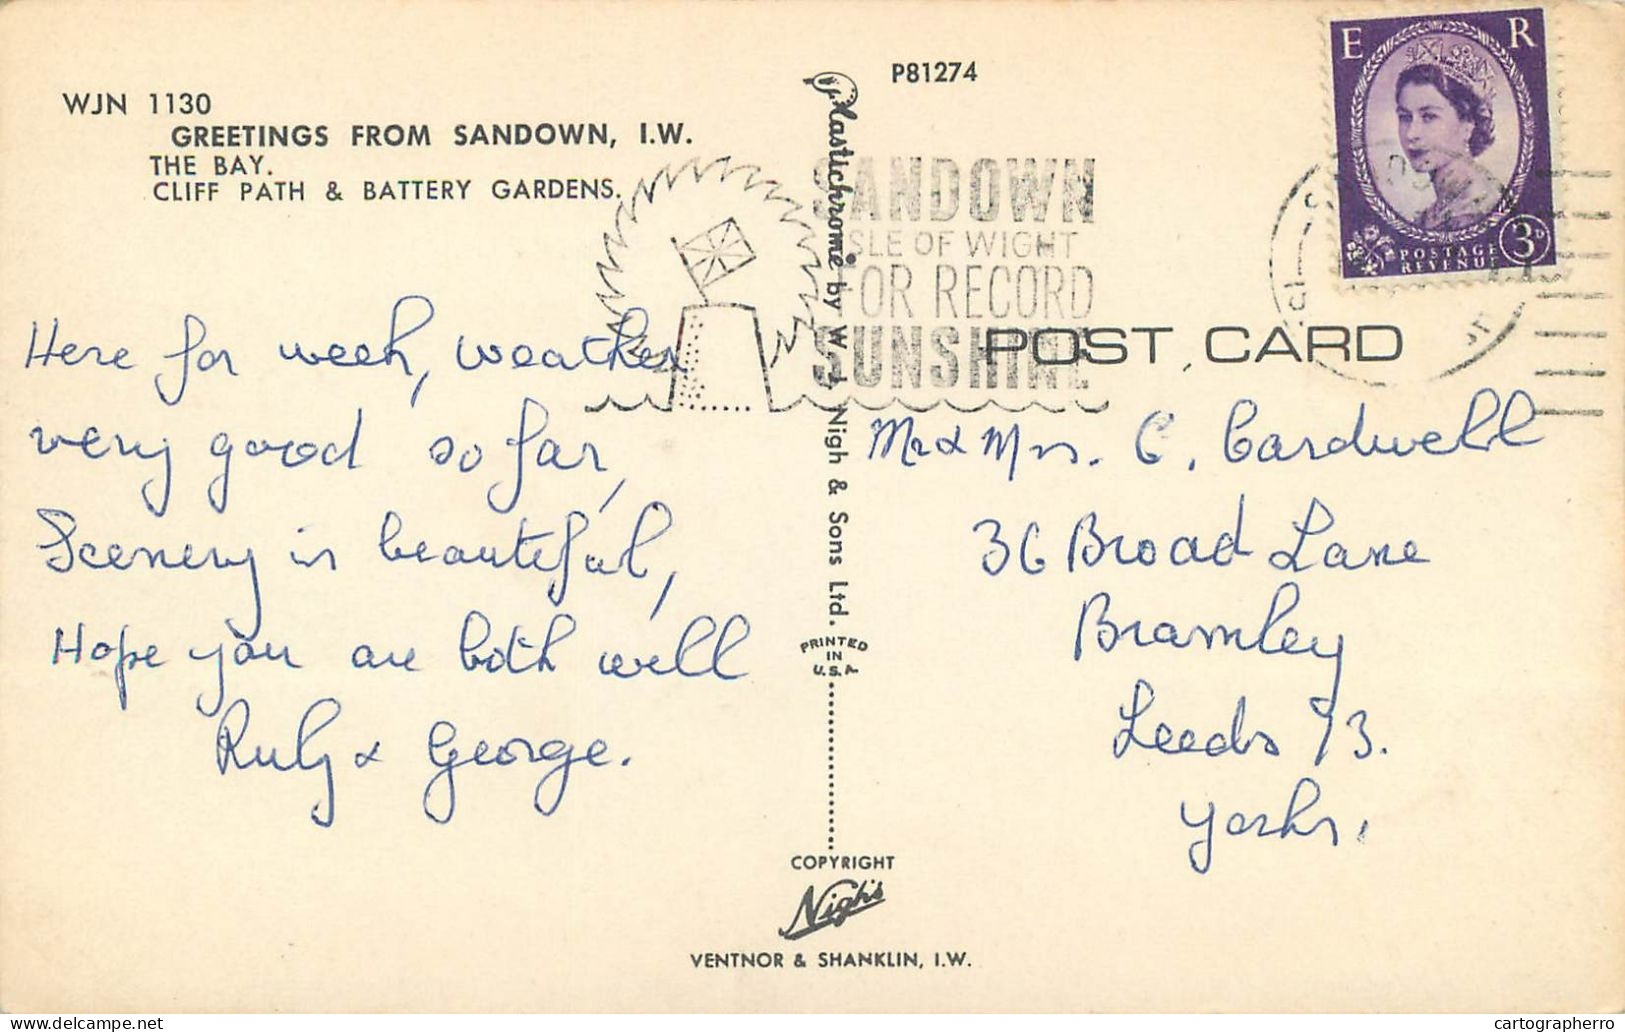 P81274
WJN 1130
GREETINGS FROM SANDOWN, I.W.
THE BAY.
CLIFF PATH & BATTERY GARDENS.
E R
POSTAGE
REVENUE
3D
SANDOWN
ISLE OF WIGHT
FOR RECORD
SUNSHINE
POST CARD
Here for week, weather
very good so far,
Scenery is beautiful,
Hope you are both well
Ruby & George.
Plastichrome by W. J. Nigh & Sons Ltd.
PRINTED
IN
U.S.A
Mr & Mrs. C. Cardwell
36 Broad Lane
Bramley
Leeds 13.
Yorks.
COPYRIGHT
Nigh's
VENTNOR & SHANKLIN, I.W.
delcampe.net
cartographerro